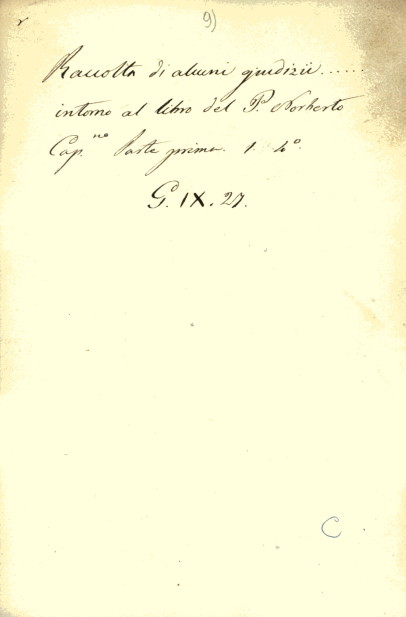 9)
Raccolta di alcuni giudizii......
intorno al libro del P. Norberto
Cap.no Parte prima. 1. 4o.
G. IX. 27.
C